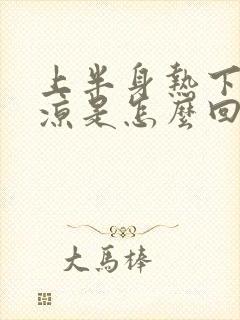 上半身熱下
涼是怎麼回
大馬棒